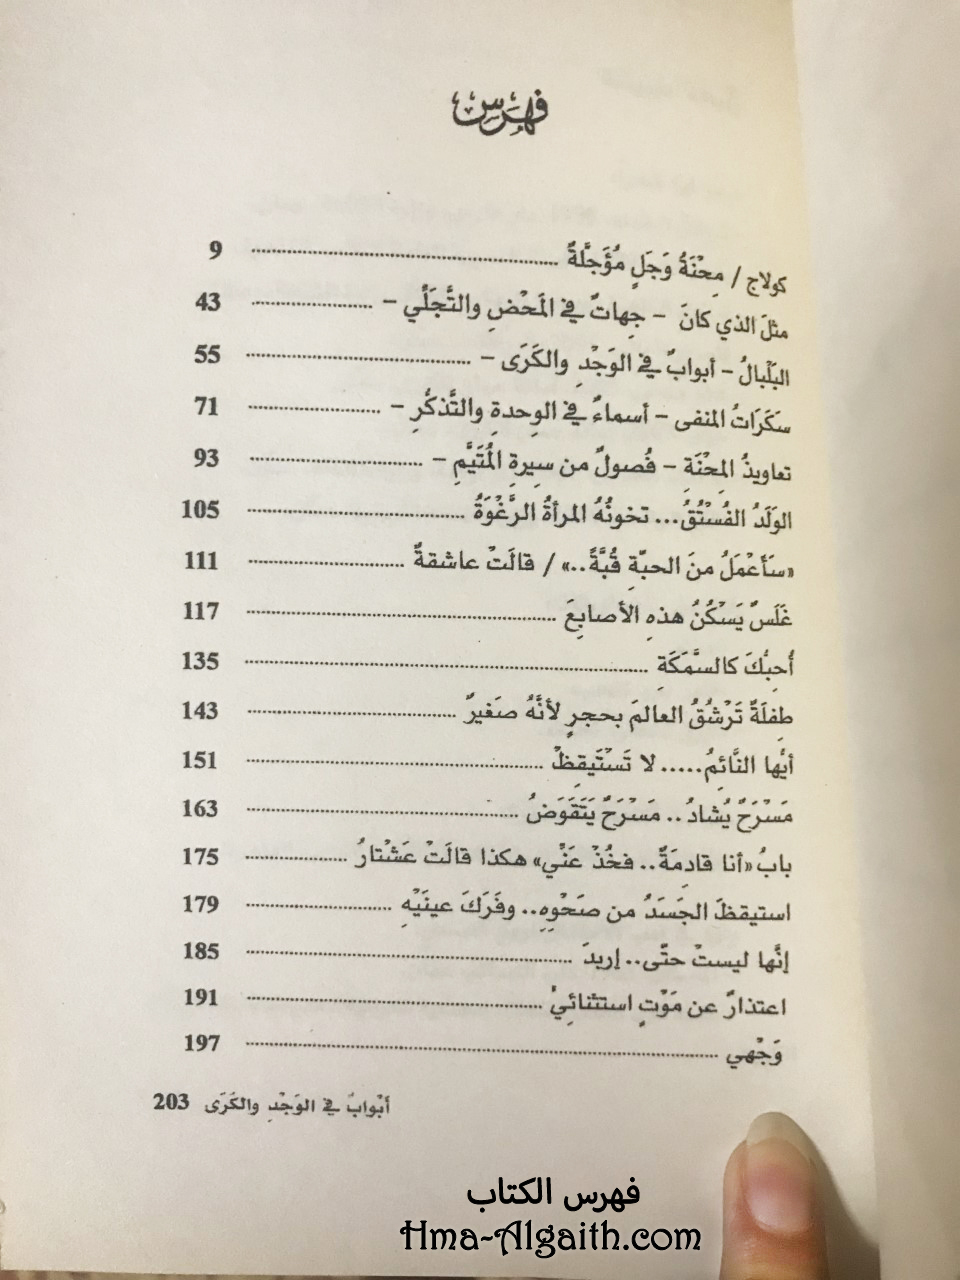 فهرس
كولاج / مِحْنَةُ وَجَلٍ مُؤَجَّلةٌ 9
مثلَ الذي كانَ - جِهاتٌ في المَحْضِ والتَّجَلِّي - 43
البَلْبالُ - أبوابٌ في الوَجْدِ والكَرَى - 55
سَكَرَاتُ المنفى - أسماءٌ في الوِحدةِ والتَّذكُّرِ - 71
تعاويذُ المِحْنَةِ - فُصولٌ من سِيرةِ المُتَيَّمِ - 93
الوَلَدُ الفُسْتُقُ... تخونُهُ المرأةُ الرَّغْوَةُ 105
«سَأعْمَلُ منَ الحبّةِ قُبَّةً..» / قالَتْ عاشقةٌ 111
غَلَسٌ يَسْكُنُ هذهِ الأصابِعَ 117
أُحِبُّكَ كالسَّمَكَةِ 135
طِفلَةٌ تَرْشُقُ العالمَ بحجرٍ لأنَّهُ صَغيرٌ 143
أيُّها النَّائِمُ..... لا تَسْتَيقِظْ 151
مَسْرَحٌ يُشادُ.. مَسْرَحٌ يَتَقَوَضُ 163
بابُ «أنا قادِمَةٌ.. فخُذْ عَنِّي» هكذا قالَتْ عَشْتارُ 175
استيقظَ الجَسَدُ من صَحْوِهِ.. وفَرَكَ عينَيْهِ 179
إنَّها ليستْ حتّى.. إربدَ 185
اعتذارٌ عن مَوْتٍ استثنائِيْ 191
وَجْهي 197
203 أبْوابٌ في الوَجْدِ والكَرَى
فهرس الكتاب
Hma-Algaith.com